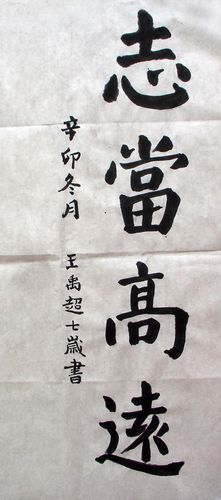 志當高遠
辛卯冬月 王禹超七歲書